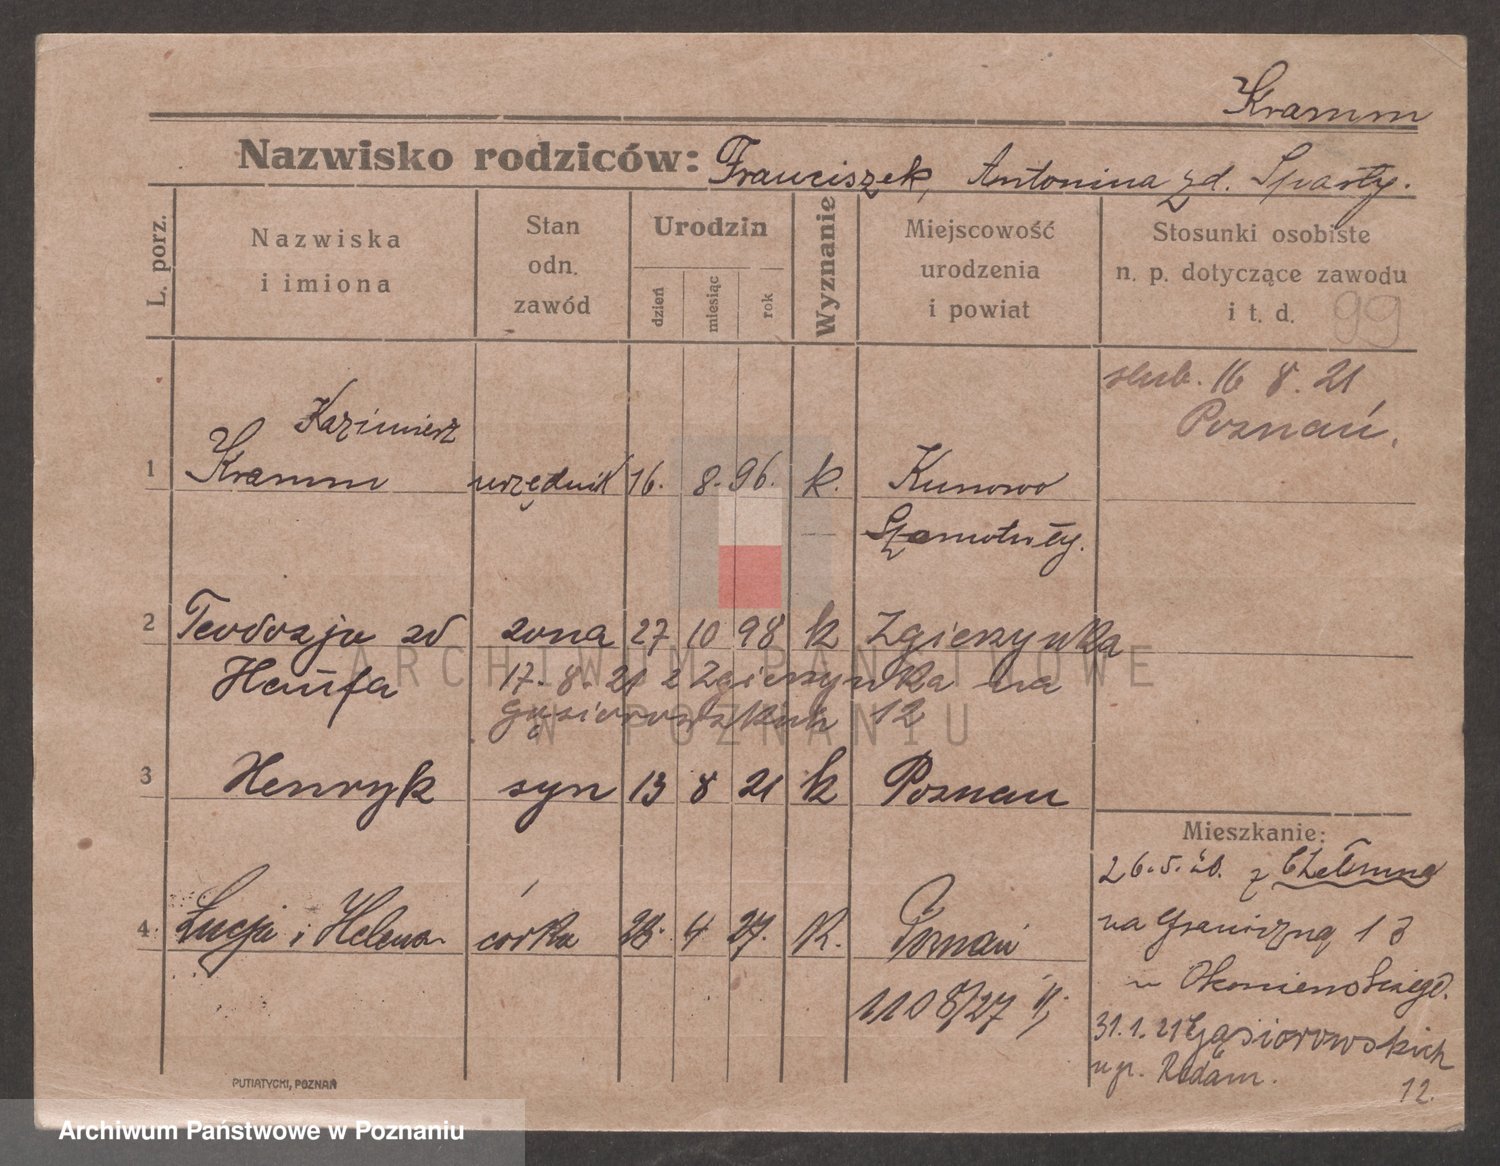 Kramm
Nazwisko rodziców: Franciszek, Antonina zd. Sparty.
L. porz.
Nazwiska
i imiona
Stan
odn.
zawód
Urodzin
dzień
miesiąc
rok
Wyznanie
Miejscowość
urodzenia
i powiat
Stosunki osobiste
n. p. dotyczące zawodu
i t. d. 99
ślub. 16 8. 21
Poznań.
Kazimierz
1 Kramm urzędnik 16. 8. 96. k. Kunowo
Szamotuły.
2 Teodozja zd żona 27 10 98 k Zgierzynka
Haufa 17. 8. 21 z Zgierzynka na
Gąsiorowskich 12
3 Henryk syn 13 8 21 k Poznań
Mieszkanie:
26. 5. 20. z
na Graniczną 13
4. Łucja i Helena córka 28. 4 27. K. Poznań
1108/27 II;
31. 1. 21 Gąsiorowskich
12.
PUTIATYCKI, POZNAŃ
ARCHIWUM PAŃSTWOWE
W POZNANIU
Archiwum Państwowe w Poznaniu